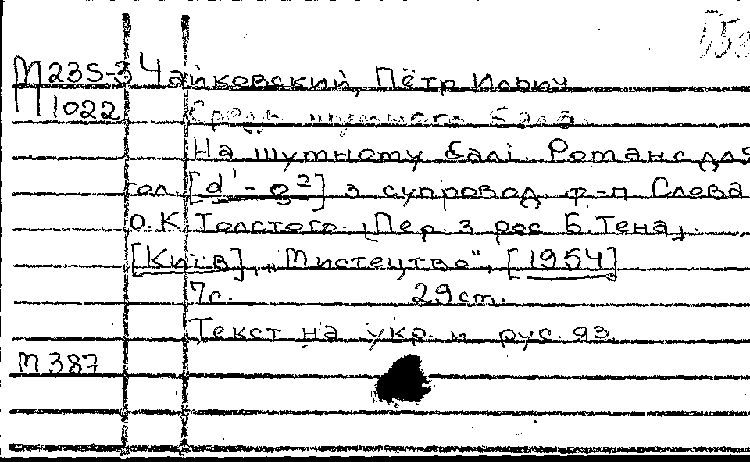 М 235-3 Чайковский, Пётр Ильич
М 1022 Средь шумного бала.
На шумному балі. Романс для
гол. [d¹-g²] з супровод. ф-п. Слова
О.К. Толстого. [Пер. з рос. Б. Тена].
[Київ], „Мистецтво", [1954]
7с. 29 cm.
Текст на укр. и рус. яз.
М 387